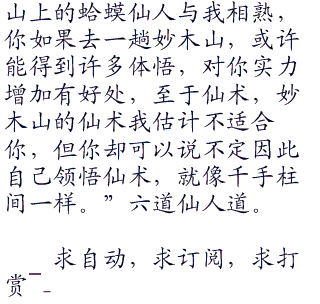 山上的蛤蟆仙人与我相熟，
你如果去一趟妙木山，或许
能得到许多体悟，对你实力
增加有好处，至于仙术，妙
木山的仙术我估计不适合
你，但你却可以说不定因此
自己领悟仙术，就像千手柱
间一样。”六道仙人道。
求自动，求订阅，求打
赏¯_